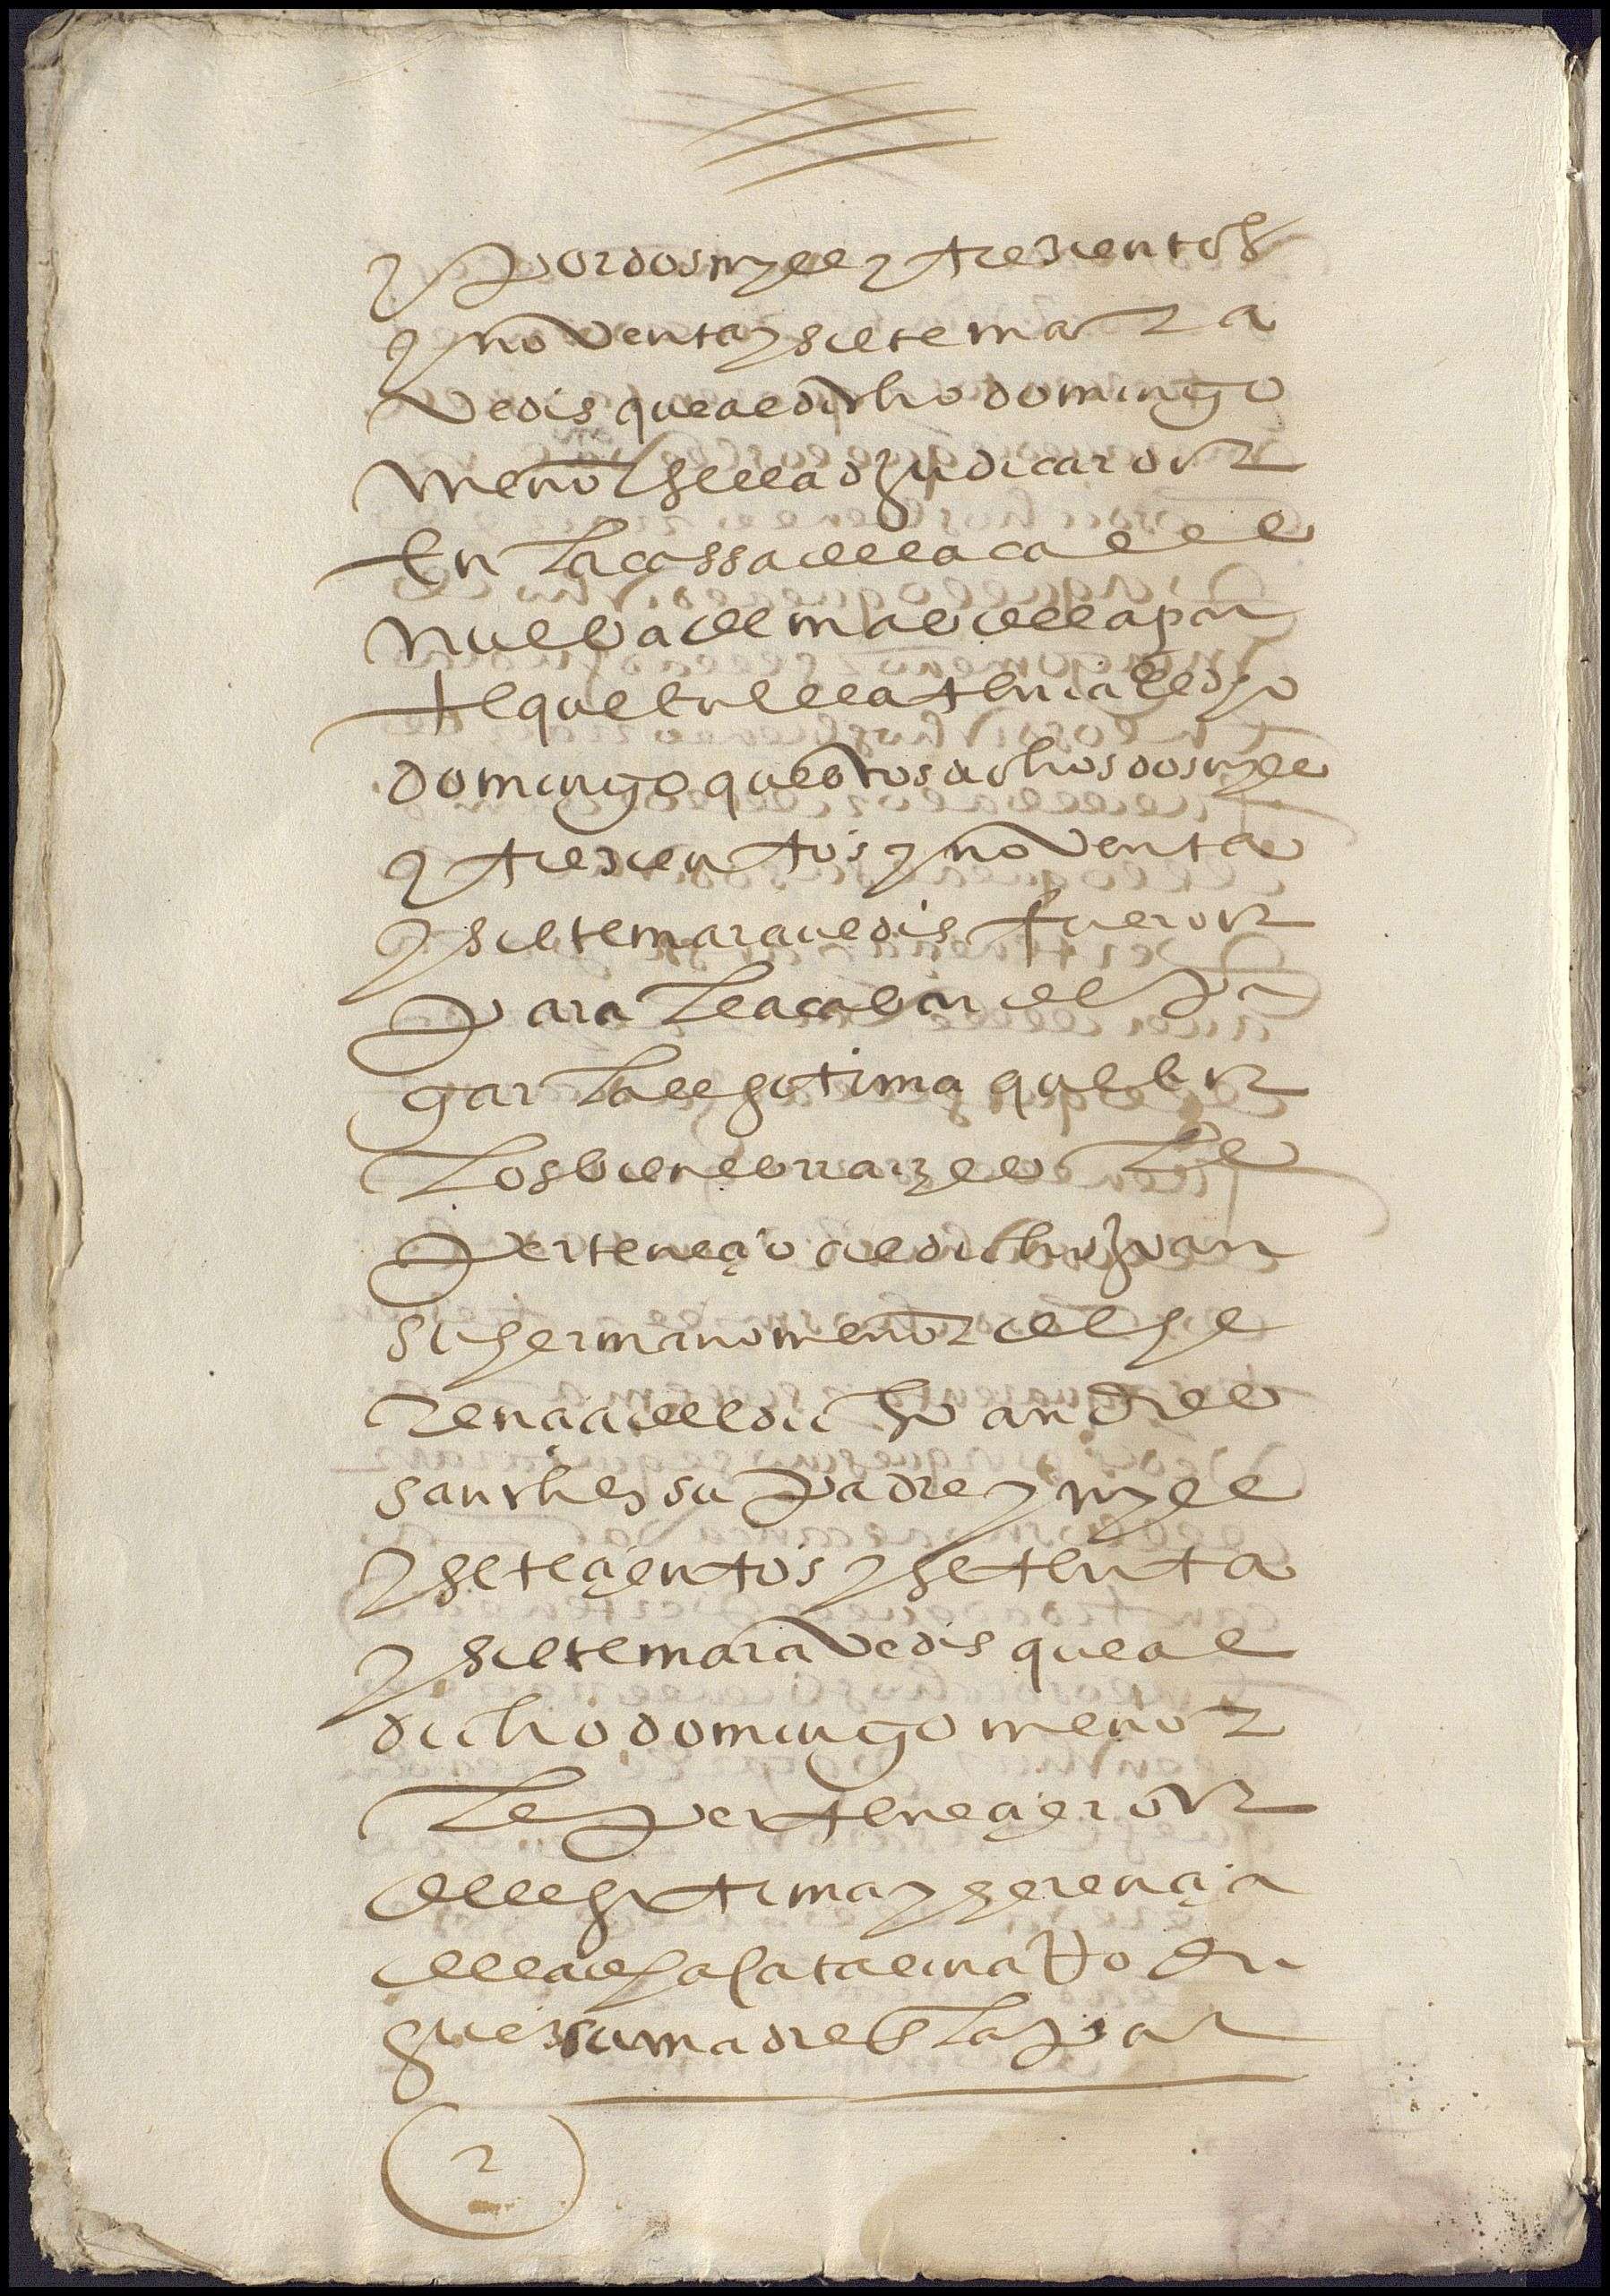 y por dos myll y trezientos
y noventa y siete mara
vedis que al dicho domingo
menor se le adjudicaron
En la cassa de la calle
nueba de mas de la par
te que en ella tenia el dho
domingo que estos dichos dos myll
y trezientos y noventa
y siete maravedis fueron
para le acabar de pa
gar la legitima que en
los bienes rraizes le
perteneçio al dicho Juan
su hermano menor de he
rençia del dicho andres
sanches su padre y myll
y seteçientos y setenta
y siete maravedis que al
dicho domingo menor
le perteneçieron
de legitima y herençia
de la dha catalina Rodri
gues su madre En la par
2